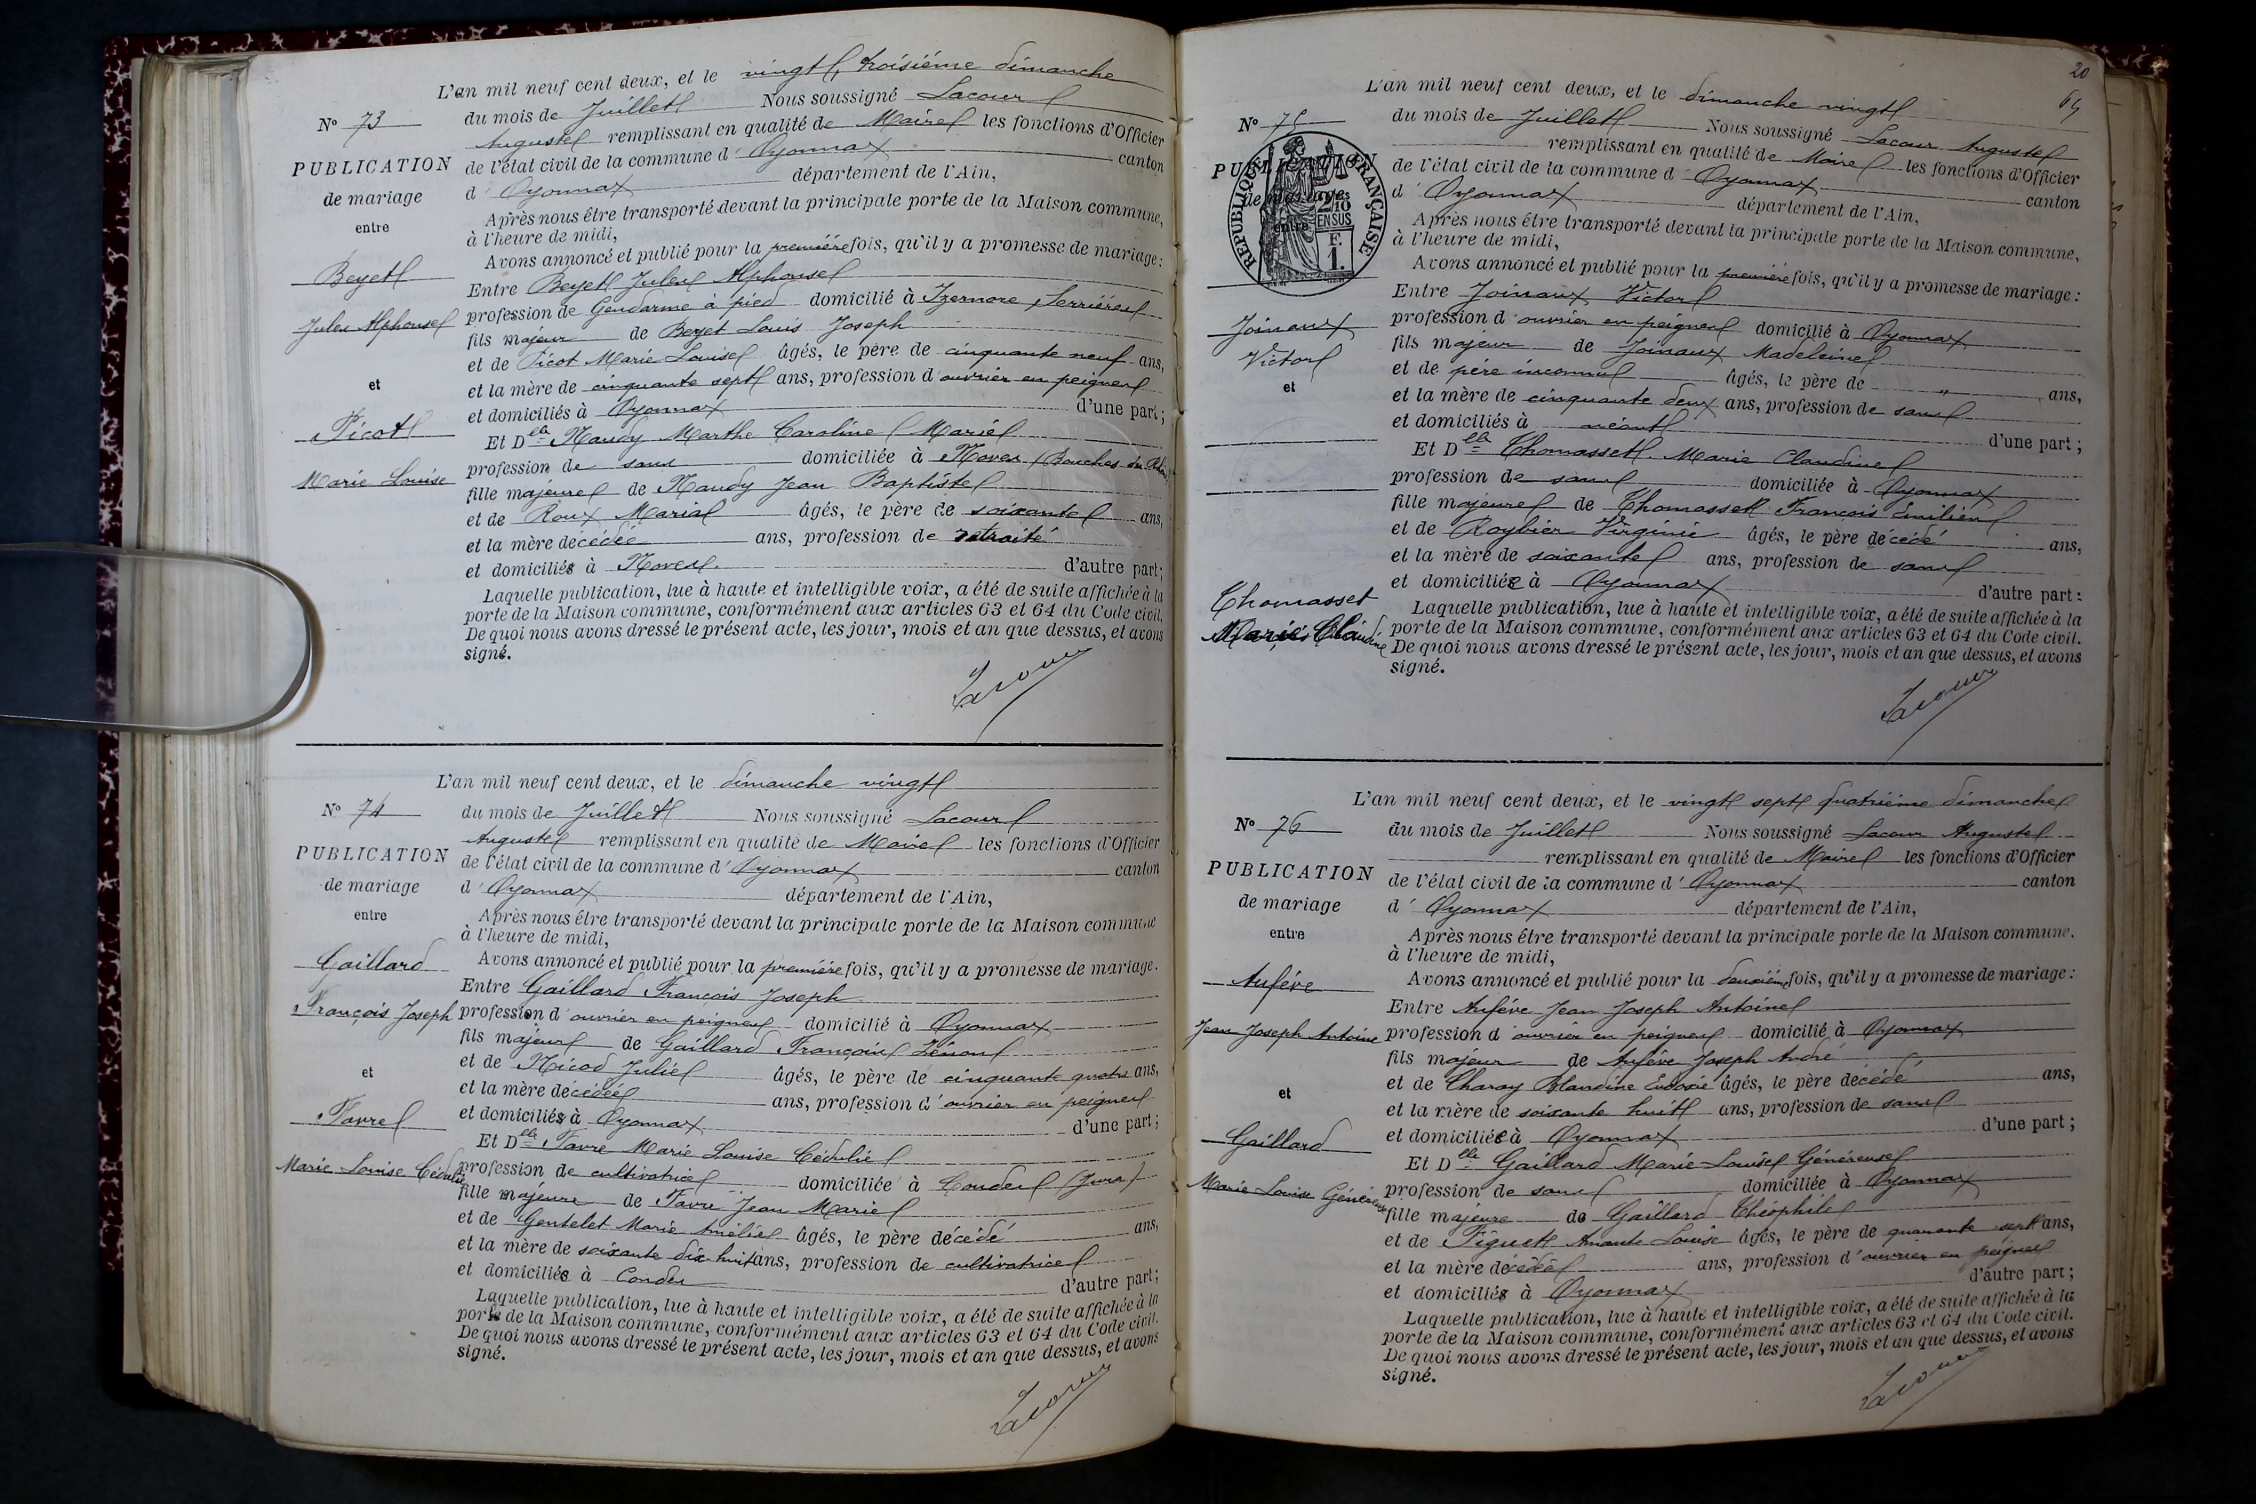 L'an mil neuf cent deux, et le vingt, troisième dimanche
N° 73
du mois de Juillet Nous soussigné Lacour
Auguste remplissant en qualité de Maire les fonctions d'Officier
PUBLICATION
de l'état civil de la commune d' Oyonnax canton
de mariage
d' Oyonnax département de l'Ain,
entre
Après nous être transporté devant la principale porte de la Maison commune,
à l'heure de midi,
Avons annoncé et publié pour la première fois, qu'il y a promesse de mariage:
Beyet
Entre Beyet Jules Alphonse
Jules Alphonse
profession de Gendarme à pied domicilié à Izernore, Serrières
fils majeur de Beyet Louis Joseph
et de Picot Marie Louise âgés, le père de cinquante neuf ans,
et
et la mère de cinquante sept ans, profession d'ouvrier en peignes
et domiciliés à Oyonnax d'une part;
Picot
Et Dlle Naudy Marthe Caroline Marie
Marie Louise
profession de sans domiciliée à Noves (Bouches du Rhône)
fille majeure de Naudy Jean Baptiste
et de Roux Maria âgés, le père de soixante ans,
et la mère décédée ans, profession de retraité
et domiciliés à Noves. d'autre part;
Laquelle publication, lue à haute et intelligible voix, a été de suite affichée à la
porte de la Maison commune, conformément aux articles 63 et 64 du Code civil.
De quoi nous avons dressé le présent acte, les jour, mois et an que dessus, et avons
signé.
Lacour
L'an mil neuf cent deux, et le dimanche vingt
N° 74
du mois de Juillet Nous soussigné Lacour
Auguste remplissant en qualité de Maire les fonctions d'Officier
PUBLICATION
de l'état civil de la commune d' Oyonnax canton
de mariage
d' Oyonnax département de l'Ain,
entre
Après nous être transporté devant la principale porte de la Maison commune
à l'heure de midi,
Gaillard
Avons annoncé et publié pour la première fois, qu'il y a promesse de mariage.
Entre Gaillard François Joseph
François Joseph
profession d'ouvrier en peignes domicilié à Oyonnax
fils majeur de Gaillard François Zénon
et de Nicod Julie âgés, le père de cinquante quatre ans,
et
et la mère décédée ans, profession d'ouvrier en peignes
et domiciliés à Oyonnax d'une part;
Favre
Et Dlle Favre Marie Louise Cédulie
Marie Louise Cédulie
profession de cultivatrice domiciliée à Condes (Jura)
fille majeure de Favre Jean Marie
et de Gentelet Marie Amélie âgés, le père décédé ans,
et la mère de soixante dix huit ans, profession de cultivatrice
et domiciliée à Condes d'autre part;
Laquelle publication, lue à haute et intelligible voix, a été de suite affichée à la
porte de la Maison commune, conformément aux articles 63 et 64 du Code civil.
De quoi nous avons dressé le présent acte, les jour, mois et an que dessus, et avons
signé.
Lacour
20
64
L'an mil neuf cent deux, et le dimanche vingt
N° 75
du mois de Juillet Nous soussigné Lacour Auguste
remplissant en qualité de Maire les fonctions d'Officier
PUBLICATION
de l'état civil de la commune d' Oyonnax canton
de mariage
d' Oyonnax département de l'Ain,
entre
RÉPUBLIQUE FRANÇAISE
2/10
EN SUS
F.
1.
Après nous être transporté devant la principale porte de la Maison commune,
à l'heure de midi,
Avons annoncé et publié pour la première fois, qu'il y a promesse de mariage:
Entre Joinaux Victor
Joinaux
profession d'ouvrier en peignes domicilié à Oyonnax
Victor
fils majeur de Joinaux Madeleine
et de père inconnu âgés, le père de " ans,
et
et la mère de cinquante deux ans, profession de sans
et domiciliés à néant d'une part;
Et Dlle Thomasset Marie Claudine
profession de sans domiciliée à Oyonnax
fille majeure de Thomasset François Emilien
et de Roybier Virginie âgés, le père décédé ans,
et la mère de soixante ans, profession de sans
et domiciliée à Oyonnax d'autre part:
Thomasset
Marie Claudine
Laquelle publication, lue à haute et intelligible voix, a été de suite affichée à la
porte de la Maison commune, conformément aux articles 63 et 64 du Code civil.
De quoi nous avons dressé le présent acte, les jour, mois et an que dessus, et avons
signé.
Lacour
L'an mil neuf cent deux, et le vingt sept quatrième dimanche
N° 76
du mois de Juillet Nous soussigné Lacour Auguste
remplissant en qualité de Maire les fonctions d'Officier
PUBLICATION
de l'état civil de la commune d' Oyonnax canton
de mariage
d' Oyonnax département de l'Ain,
entre
Après nous être transporté devant la principale porte de la Maison commune.
à l'heure de midi,
Aufève
Avons annoncé et publié pour la deuxième fois, qu'il y a promesse de mariage:
Entre Aufève Jean Joseph Antoine
Jean Joseph Antoine
profession d'ouvrier en peignes domicilié à Oyonnax
fils majeur de Aufève Joseph André
et de Charay Blandine âgés, le père décédé ans,
et
et la mère de soixante huit ans, profession de sans
et domiciliée à Oyonnax d'une part;
Gaillard
Et Dlle Gaillard Marie Louise Généreuse
Marie Louise Généreuse
profession de sans domiciliée à Oyonnax
fille majeure de Gaillard Théophile
et de Piquet Amante Louise âgés, le père de quarante sept ans,
et la mère décédée ans, profession d'ouvrier en peignes
et domiciliés à Oyonnax d'autre part;
Laquelle publication, lue à haute et intelligible voix, a été de suite affichée à la
porte de la Maison commune, conformément aux articles 63 et 64 du Code civil.
De quoi nous avons dressé le présent acte, les jour, mois et an que dessus, et avons
signé.
Lacour